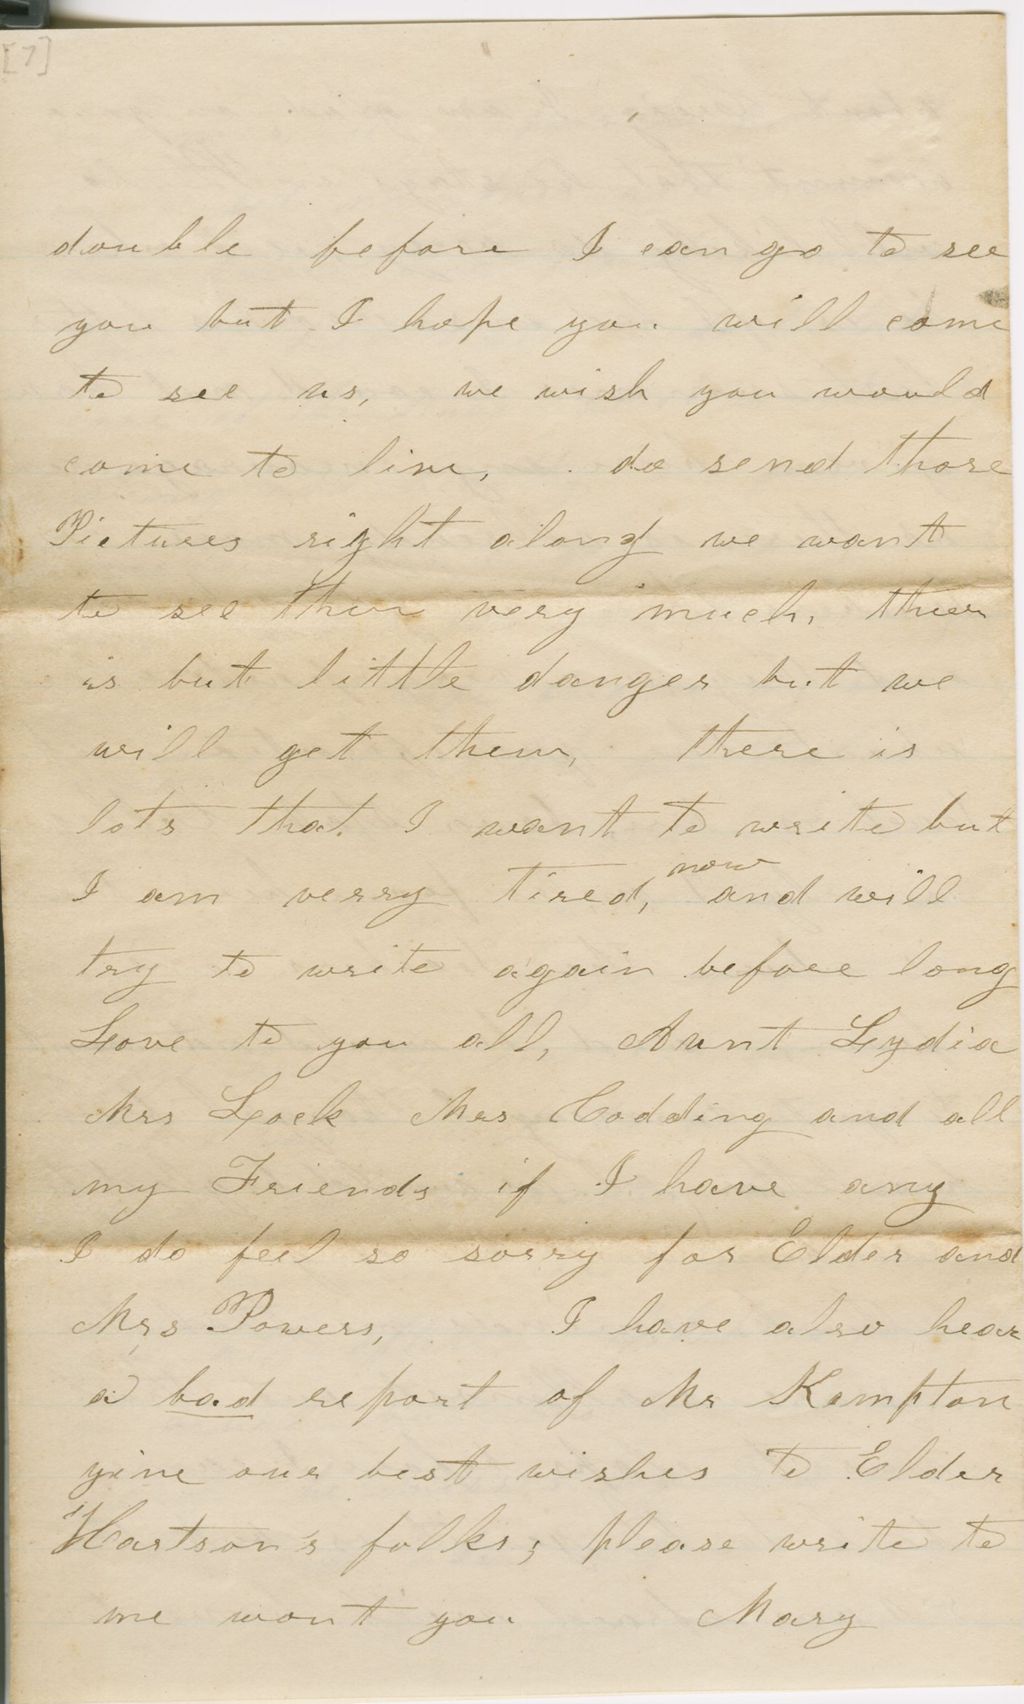 [7]
double before I can go to see
you but I hope you will come
to see us, we wish you would
come to live, do send those
Pictures right along we want
to see them very much, ther
is but little danger but we
will get them, there is
lots that I want to write but
I am verry tired, now and will
try to write again before long
Love to you all, Aunt Lydia
Mrs Lock Mrs Codding and all
my Friends if I have any
I do feel so sorry for Elder and
Mrs Powers, I have also hear
a bad report of Mr Kempton
give our best wishes to Elder
Hartson's folks, please write to
me wont you Mary